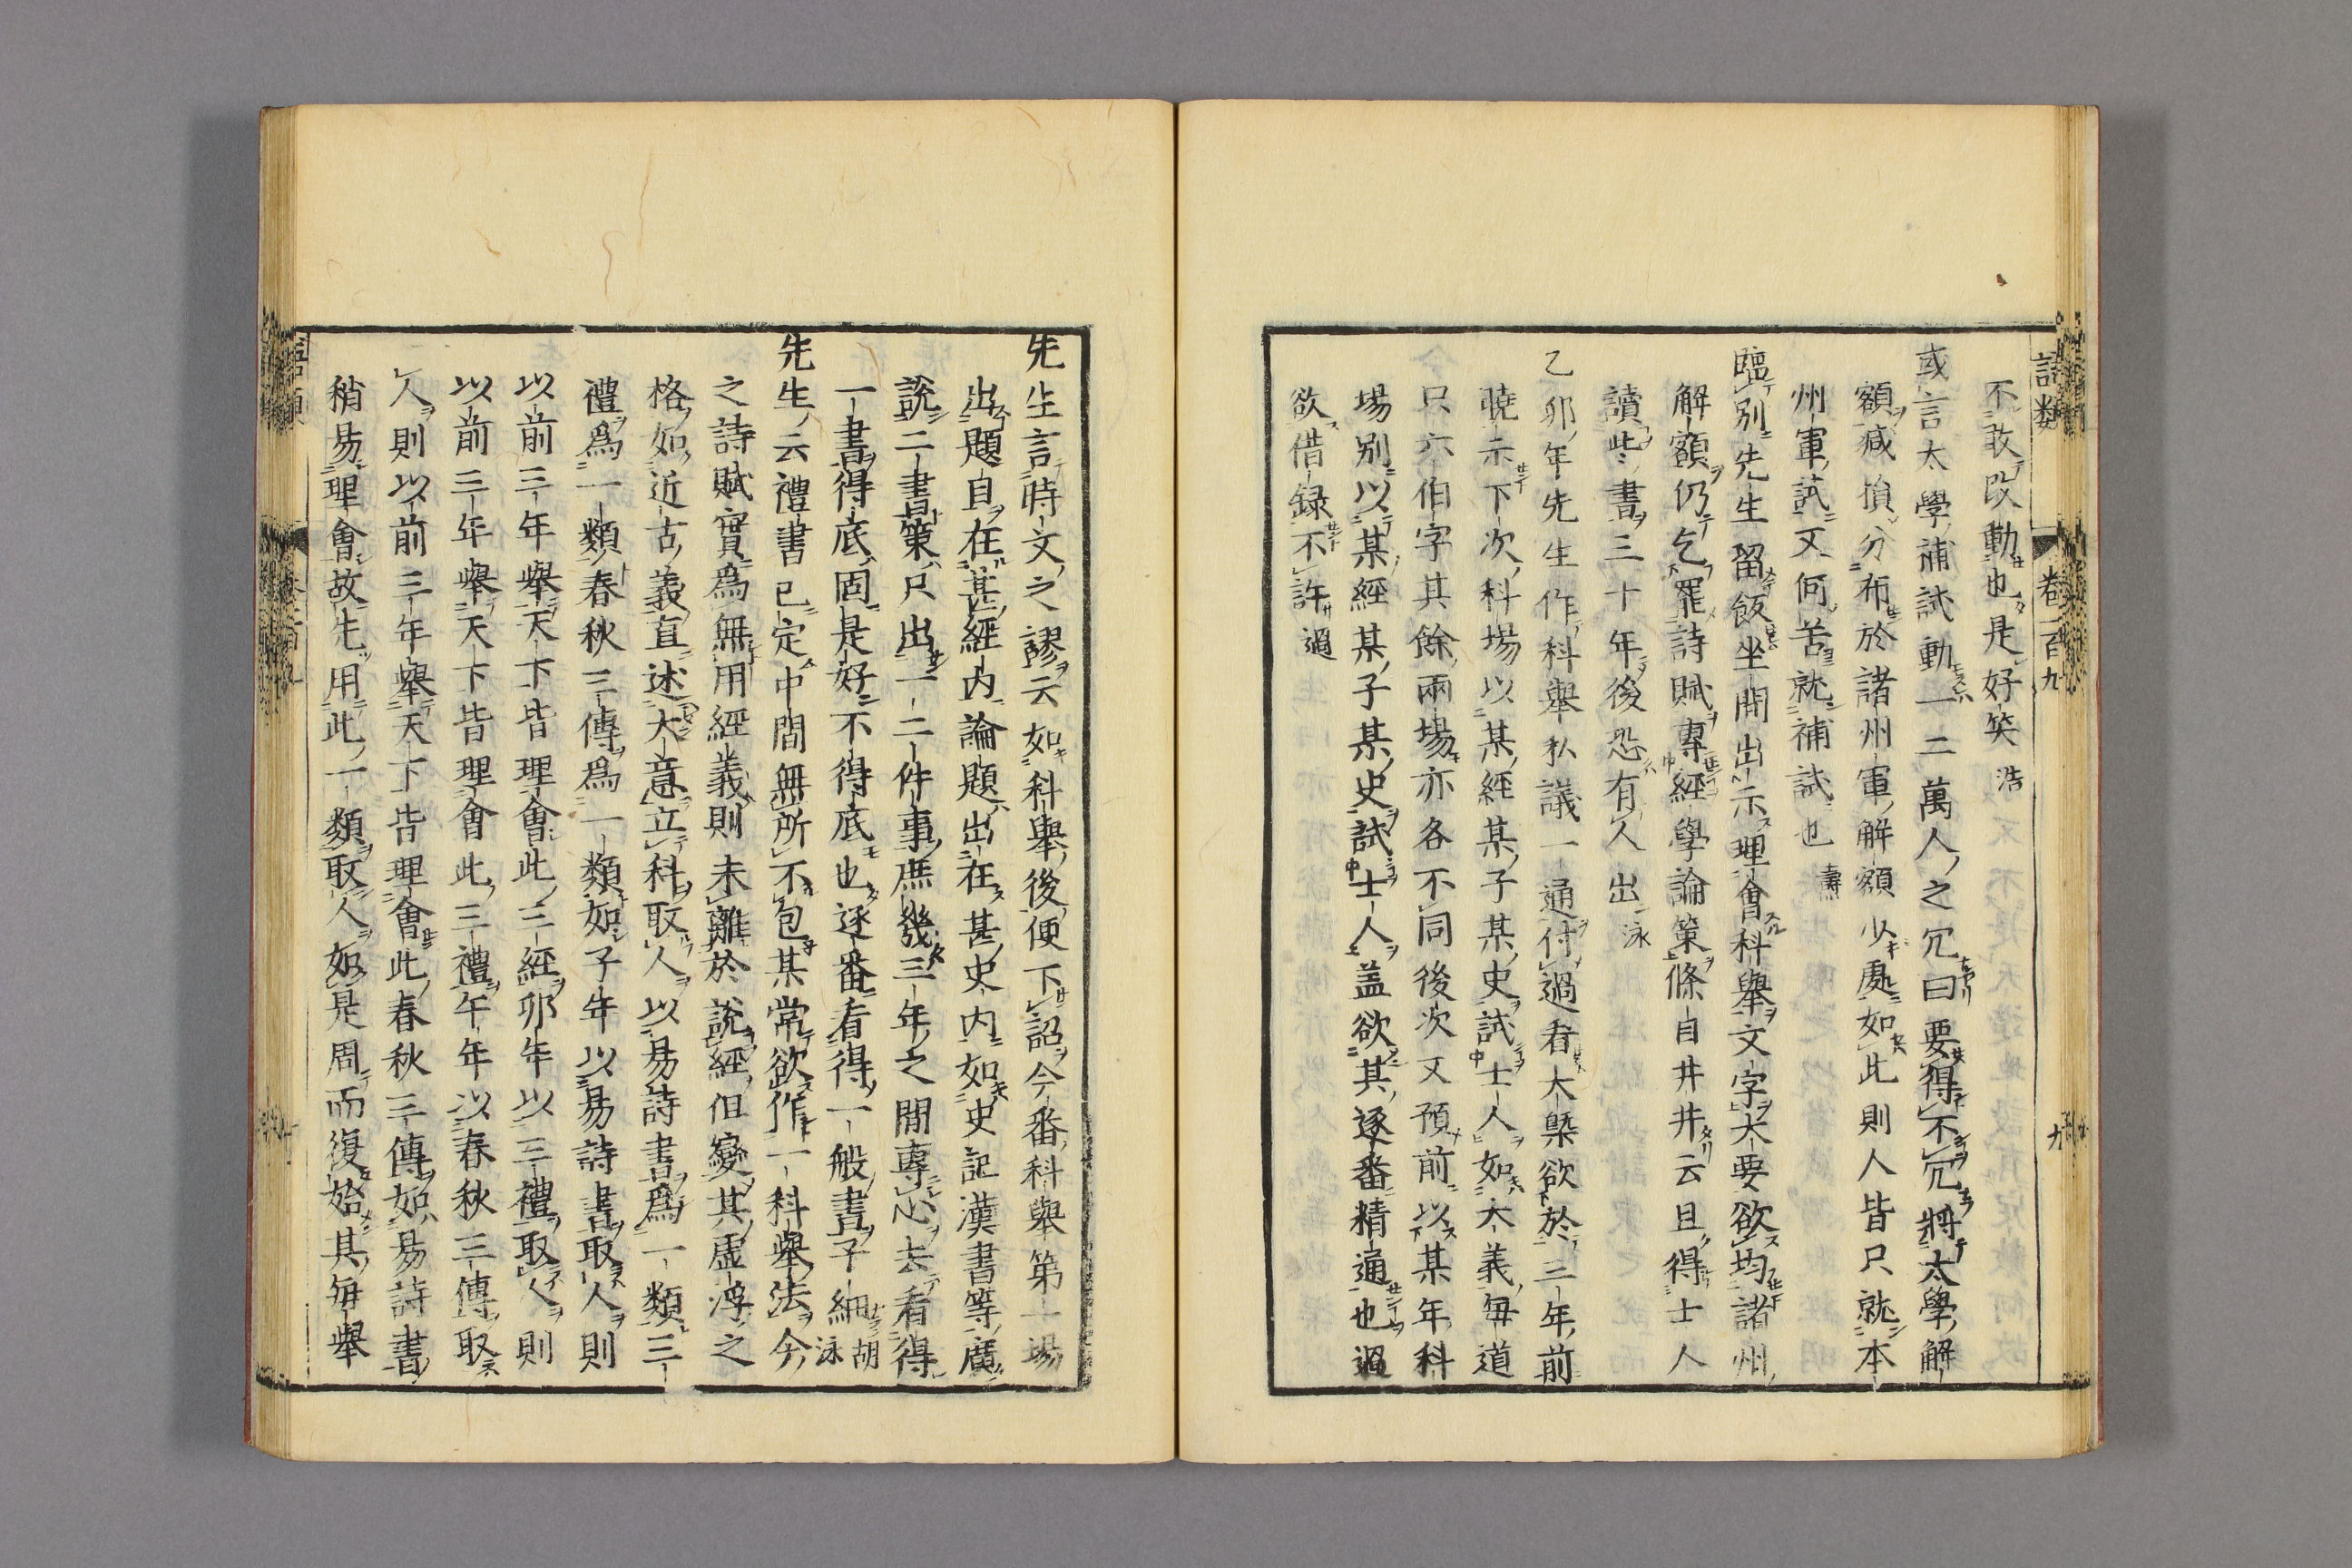 語類
卷一百九
九
不敢改動也是好笑 浩
或言太學補試動一二萬人之冗曰要得不冗將太學解
額减損分布於諸州軍解額少處如此則人皆只就本
州軍試又何苦就補試也 壽
臨別先生留飯坐間出示理會科舉文字大要欲均諸州
解額仍乞罷詩賦專經學論策條自井井云且得士人
讀些書三十年後恐有人出 泳
乙卯年先生作科舉私議一通付過看大槩欲於三年前
曉示下次科場以某經某子某史試士人如大義每道
只六伯字其餘兩場亦各不同後次又預前以某年科
場別以某經某子某史試士人蓋欲其逐番精通也過
欲借録不許 過
先生言時文之謬云如科舉後便下詔今番科舉第一場
出題自在甚經内論題出在甚史内如史記漢書等廣
說二書策只出一二件事庶幾三年之間專心去看得
一書得底固是好不得底也逐番看得一般書子細 胡泳
先生云禮書已定中間無所不包某常欲作一科舉法今
之詩賦實爲無用經義則未離於說經但變其虛浮之
格如近古義直述大意立科取人以易詩書爲一類三
禮爲一類春秋三傳爲一類如子年以易詩書取人則
以前三年舉天下皆理會此三經卯年以三禮取人則
以前三年舉天下皆理會此三禮午年以春秋三傳取
人則以前三年舉天下皆理會此春秋三傳如易詩書
稍易理會故先用此一類取人如是周而復始其每舉